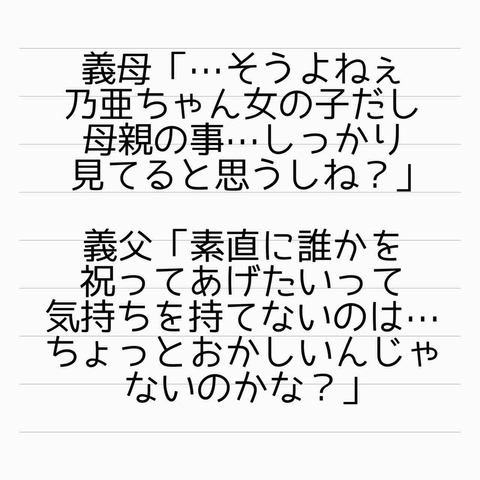 義母「…そうよねぇ
乃亜ちゃん女の子だし
母親の事…しっかり
見てると思うしね？」
義父「素直に誰かを
祝ってあげたいって
気持ちを持てないのは…
ちょっとおかしいんじゃ
ないのかな？」